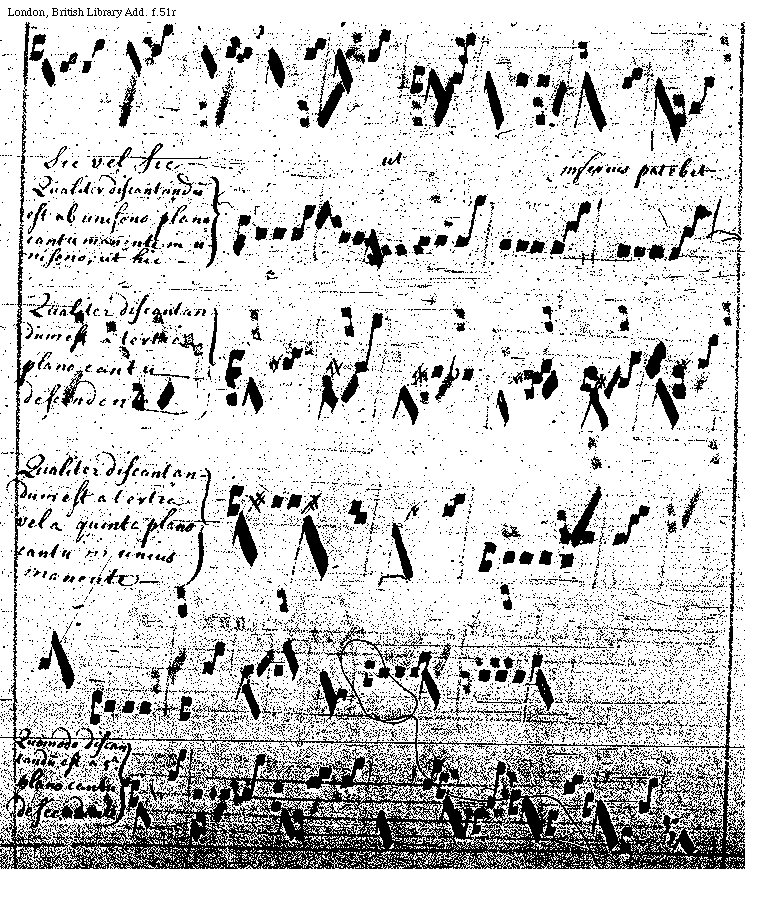 London, British Library Add. f.51r
Sic vel sic
ut
inferius patebit
Qualiter discantandū
est ab unisono plano
cantu manente in u-
nisono, ut hic
Qualiter discantan-
dum est a tertia
plano cantu
descendente
Qualiter discantan-
dum est a tertia
vel a quinta plano
cantu in unius
manente
Quomodo discan
tandū est a 5ª
plano cantu
descendente